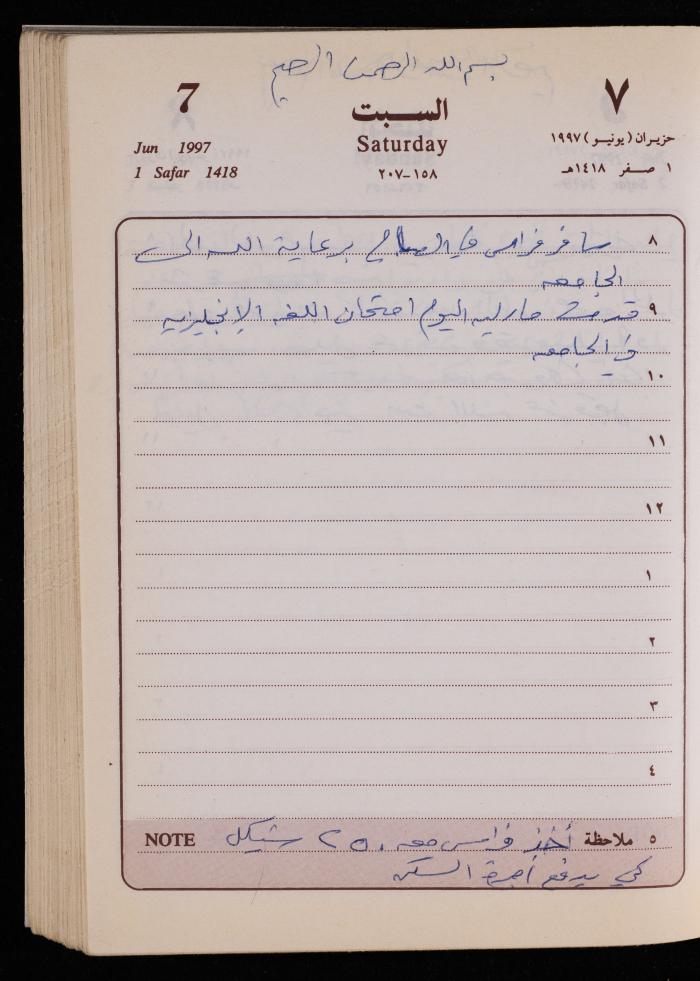 بسم الله الرحمن الرحيم
7
السبت
٧
Jun 1997
Saturday
حزيران (يونيو) ١٩٩٧
1 Safar 1418
٢٠٧-١٥٨
١ صفر ١٤١٨هـ
٨ سافر فراس في الصباح برعاية الله الى
الجامعه
٩ قدمت مارليه اليوم امتحان اللغه الإنجليزيه
في الجامعه
١٠
١١
١٢
١
٢
٣
٤
٥ ملاحظة أخذ فراس معه ٢٥٠ شيكل NOTE
كي يدفع أجرة السكن